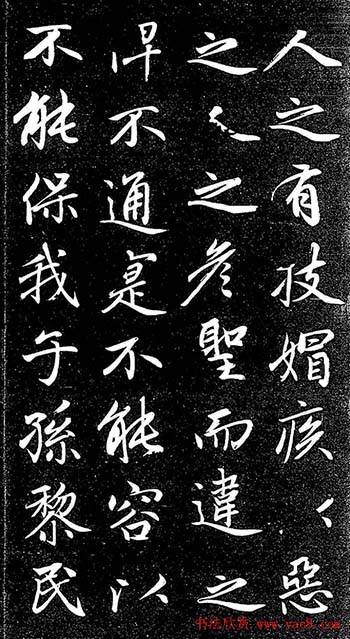 人之有技媢疾以惡
之人之彦聖而違之
俾不通寔不能容以
不能保我子孫黎民
书法欣赏 www.yac8.com